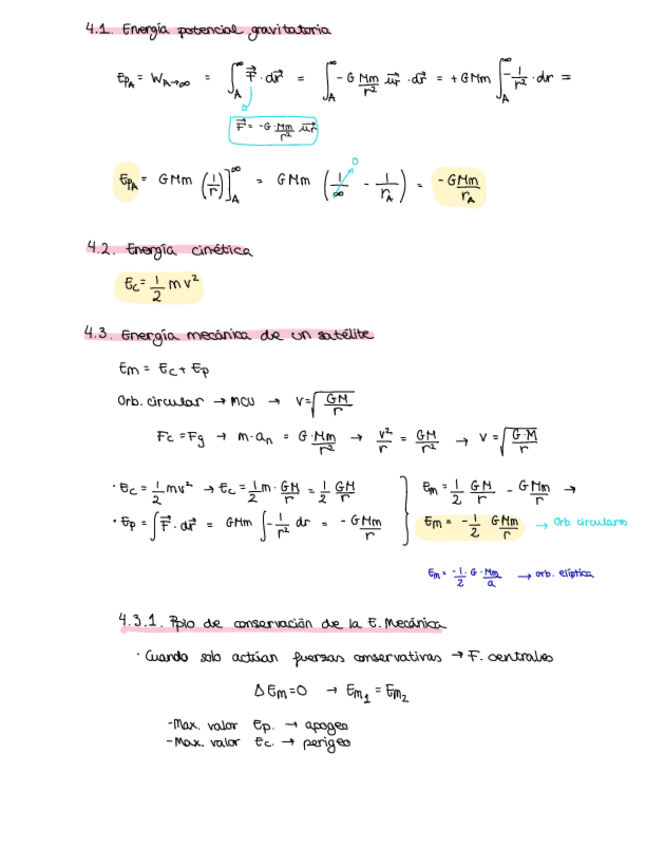 4.1. Energía potencial gravitatoria
Ep_A = W_A→∞ = ∫_A^∞ F⃗ · dr⃗ = ∫_A^∞ - G Mm/r² u⃗r · dr⃗ = + GMm ∫_A^∞ - 1/r² · dr =
F⃗ = -G · Mm/r² u⃗r
Ep_A = GMm (1/r)]_A^∞ = GMm (1/∞ - 1/r_A) = -GMm/r_A
0
4.2. Energía cinética
Ec = 1/2 m v²
4.3. Energía mecánica de un satélite
Em = Ec + Ep
Orb. circular → MCU → v = √(GM/r)
Fc = Fg → m · a_n = G · Mm/r² → v²/r = GM/r² → v = √(G·M/r)
· Ec = 1/2 mv² → Ec = 1/2 m · GM/r = 1/2 GM/r
· Ep = ∫ F⃗ · dr⃗ = GMm ∫ - 1/r² dr = - GMm/r
Em = 1/2 GM/r - GMm/r →
Em = - 1/2 GMm/r → Orb. circulares
Em = -1/2 · G · Mm/a → orb. elíptica
4.3.1. Ppio de conservación de la E. Mecánica
· Cuando solo actúan fuerzas conservativas → F. centrales
ΔEm = 0 → Em₁ = Em₂
-Max. valor Ep. → apogeo
-Max. valor Ec. → perigeo